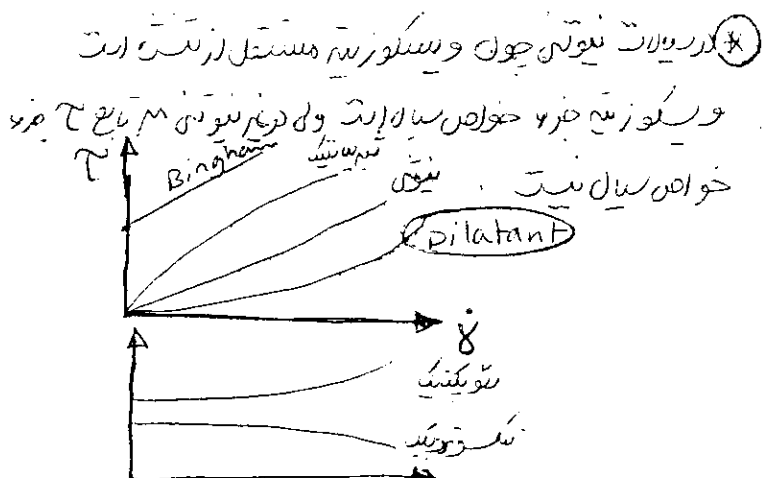 * در سیالات نیوتنی چون ویسکوزیته مستقل از تنش است
ویسکوزیته جزء خواص سیال است ولی در غیر نیوتنی μ تابع τ جزء
خواص سیال نیست .
τ
Bingham
نیوتنی
Dilatant
γ̇